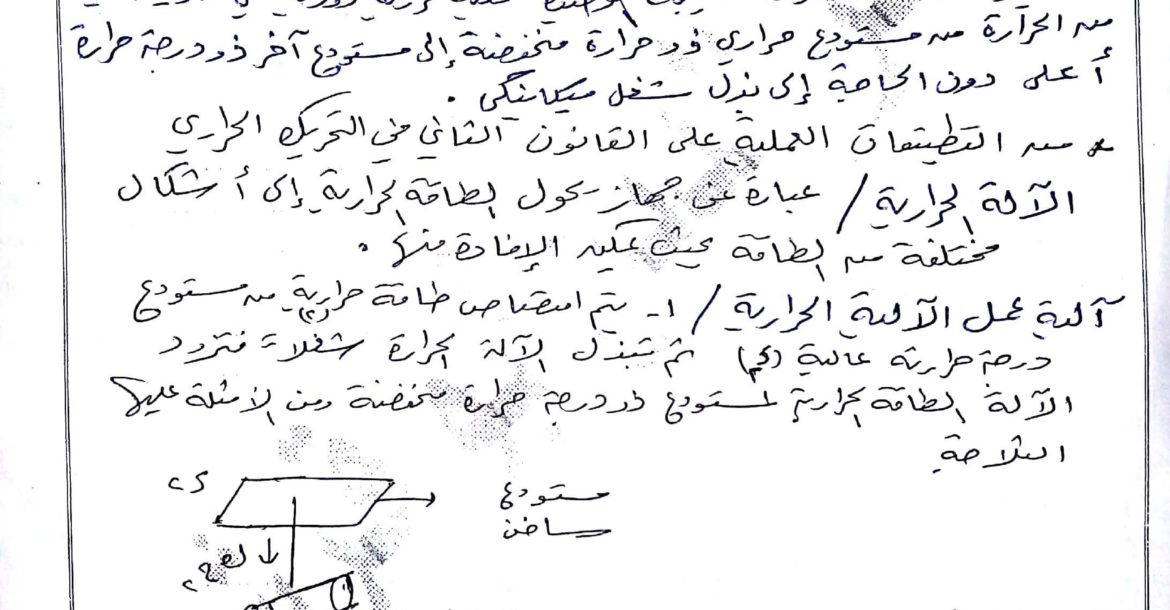 من الحرارة من مستودع حراري ذو حرارة منخفضة إلى مستودع آخر ذو درجة حرارة
أعلى دون الحاجة إلى بذل شغل ميكانيكي .
* من التطبيقات العملية على القانون الثاني في التحريك الحراري
الآلة الحرارية / عبارة عن جهاز يحول الطاقة الحرارية إلى أشكال
مختلفة من الطاقة بحيث يمكن الإفادة منها .
آلية عمل الآلية الحرارية / ١- يتم امتصاص طاقة حرارية من مستودع
درجة حرارته عالية ثم تبذل الآلة الحرارة شغلاً فتزود
الآلة الطاقة الحرارية لمستودع ذو درجة حرارة منخفضة ومن الأمثلة عليها
الثلاجة
مستودع
ساخن